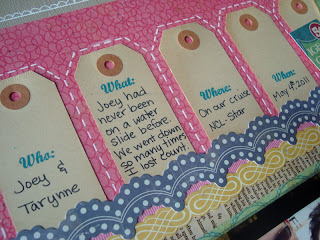 Who:
Joey &
Tarynne
What:
Joey had
never been
on a water
slide before.
We went down
so many times
I lost count.
Where:
On our cruise
NCL-Star
When: